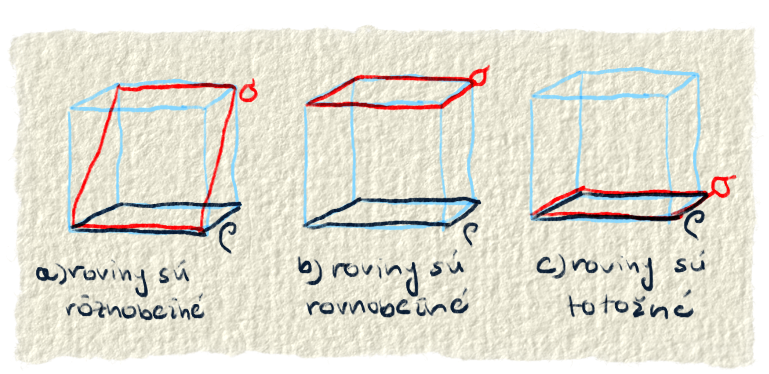 σ
ρ
a) roviny sú
rôznobežné
σ
ρ
b) roviny sú
rovnobežné
σ
ρ
c) roviny sú
totožné